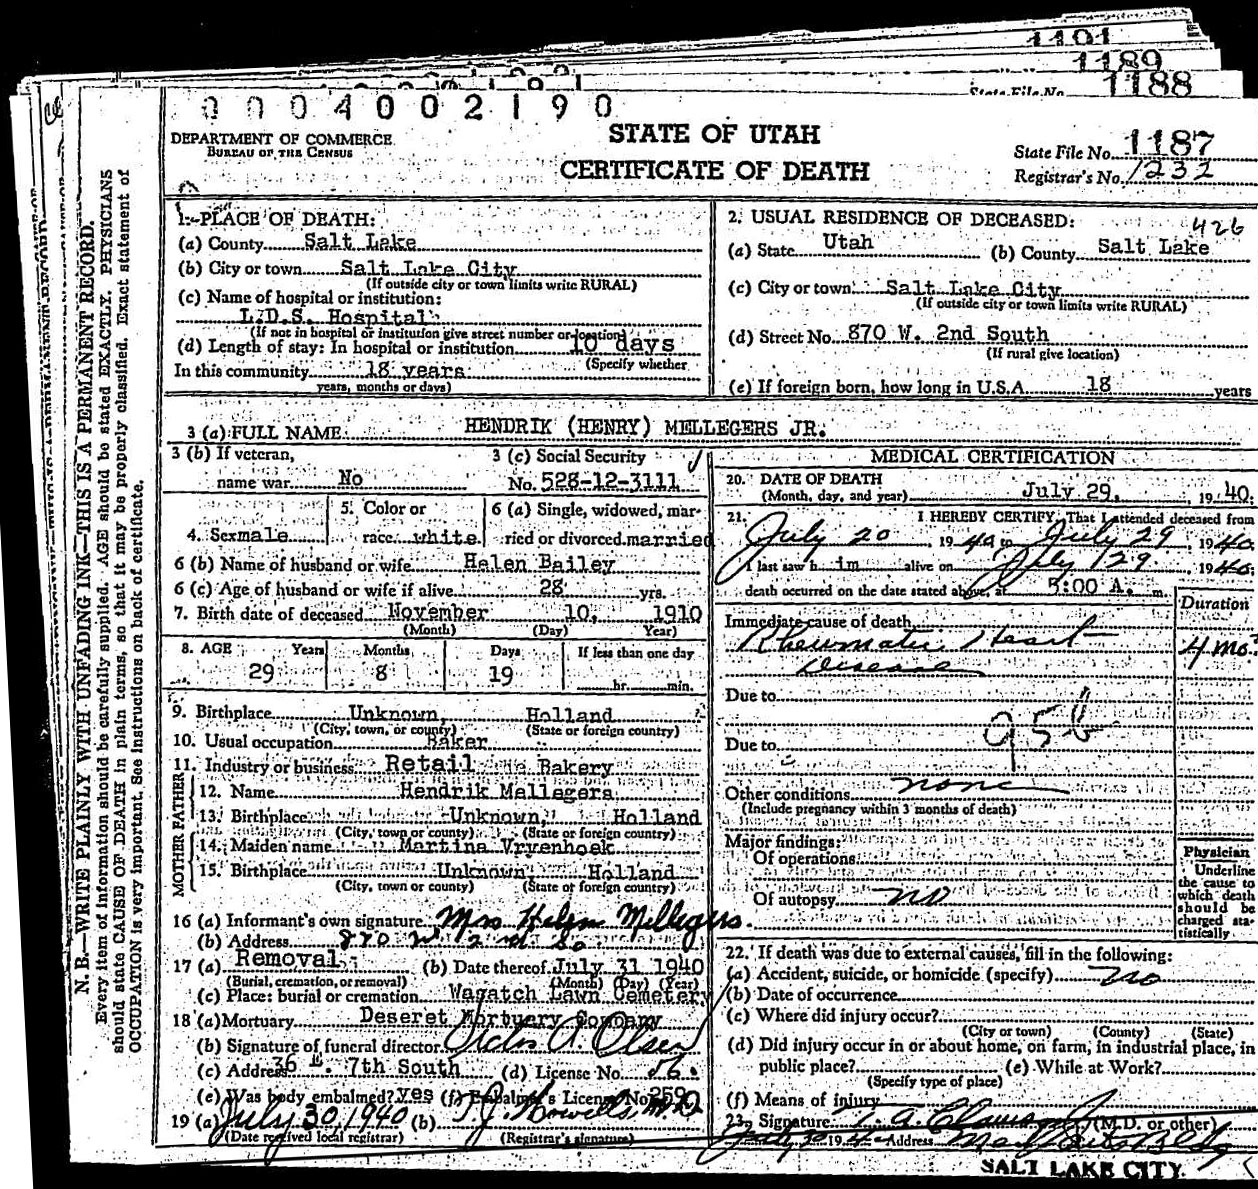 1191
1189
State File No. 1188
0 0 0 4 0 0 2 1 9 0
DEPARTMENT OF COMMERCE
BUREAU OF THE CENSUS
STATE OF UTAH
CERTIFICATE OF DEATH
State File No. 1187
Registrar's No. 1232
N. B.—WRITE PLAINLY WITH UNFADING INK—THIS IS A PERMANENT RECORD.
Every item of information should be carefully supplied. AGE should be stated EXACTLY. PHYSICIANS
should state CAUSE OF DEATH in plain terms, so that it may be properly classified. Exact statement of
OCCUPATION is very important. See instructions on back of certificate.
1. PLACE OF DEATH:
(a) County Salt Lake
(b) City or town Salt Lake City
(If outside city or town limits write RURAL)
(c) Name of hospital or institution:
L.D.S. Hospital
(If not in hospital or institution give street number or location)
(d) Length of stay: In hospital or institution 10 days
(Specify whether
In this community 18 years
years, months or days)
2. USUAL RESIDENCE OF DECEASED: 426
(a) State Utah (b) County Salt Lake
(c) City or town Salt Lake City
(If outside city or town limits write RURAL)
(d) Street No. 870 W. 2nd South
(If rural give location)
(e) If foreign born, how long in U.S.A. 18 years
3 (a) FULL NAME HENDRIK (HENRY) MELLEGERS JR.
3 (b) If veteran,
name war No
3 (c) Social Security
No. 528-12-3111
4. Sex male
5. Color or
race white
6 (a) Single, widowed, mar-
ried or divorced married
6 (b) Name of husband or wife Helen Bailey
6 (c) Age of husband or wife if alive 28 yrs.
7. Birth date of deceased November 10, 1910
(Month) (Day) Year)
8. AGE Years Months Days If less than one day
29 8 19 hr. min.
9. Birthplace Unknown, Holland
(City, town, or county) (State or foreign country)
10. Usual occupation Baker
11. Industry or business Retail Bakery
FATHER
12. Name Hendrik Mellegers
13. Birthplace Unknown, Holland
(City, town or county) (State or foreign country)
MOTHER
14. Maiden name Martina Vryenhoek
15. Birthplace Unknown, Holland
(City, town or county) (State or foreign country)
16 (a) Informant's own signature Mrs Helen Mellegers.
(b) Address 870 W 2nd So
17 (a) Removal (b) Date thereof July 31 1940
(Burial, cremation, or removal) (Month) (Day) (Year)
(c) Place: burial or cremation Wasatch Lawn Cemetery
18 (a) Mortuary Deseret Mortuary Company
(b) Signature of funeral director A. Olsen
(c) Address 36 E. 7th South (d) License No. 56.
(e) Was body embalmed? yes (f) Embalmer's License No. 259
19 (a) July 30, 1940 (b)
(Date received local registrar) (Registrar's signature)
MEDICAL CERTIFICATION
20. DATE OF DEATH
(Month, day, and year) July 29, 1940.
21. I HEREBY CERTIFY, That I attended deceased from
July 20 1940 to July 29, 1940
I last saw him alive on July 29, 1940.
death occurred on the date stated above, at 5:00 A. m.
Duration
Immediate cause of death
Rheumatic Heart 4 mo.
Disease
Due to
95b
Due to
Other conditions none
(Include pregnancy within 3 months of death)
Major findings:
Of operations
Of autopsy no
Physician
Underline
the cause to
which death
should be
charged sta-
tistically
22. If death was due to external causes, fill in the following:
(a) Accident, suicide, or homicide (specify) no
(b) Date of occurrence
(c) Where did injury occur?
(City or town) (County) (State)
(d) Did injury occur in or about home, on farm, in industrial place, in
public place? (e) While at Work?
(Specify type of place)
(f) Means of injury
23. Signature (M.D. or other)
Address
SALT LAKE CITY.